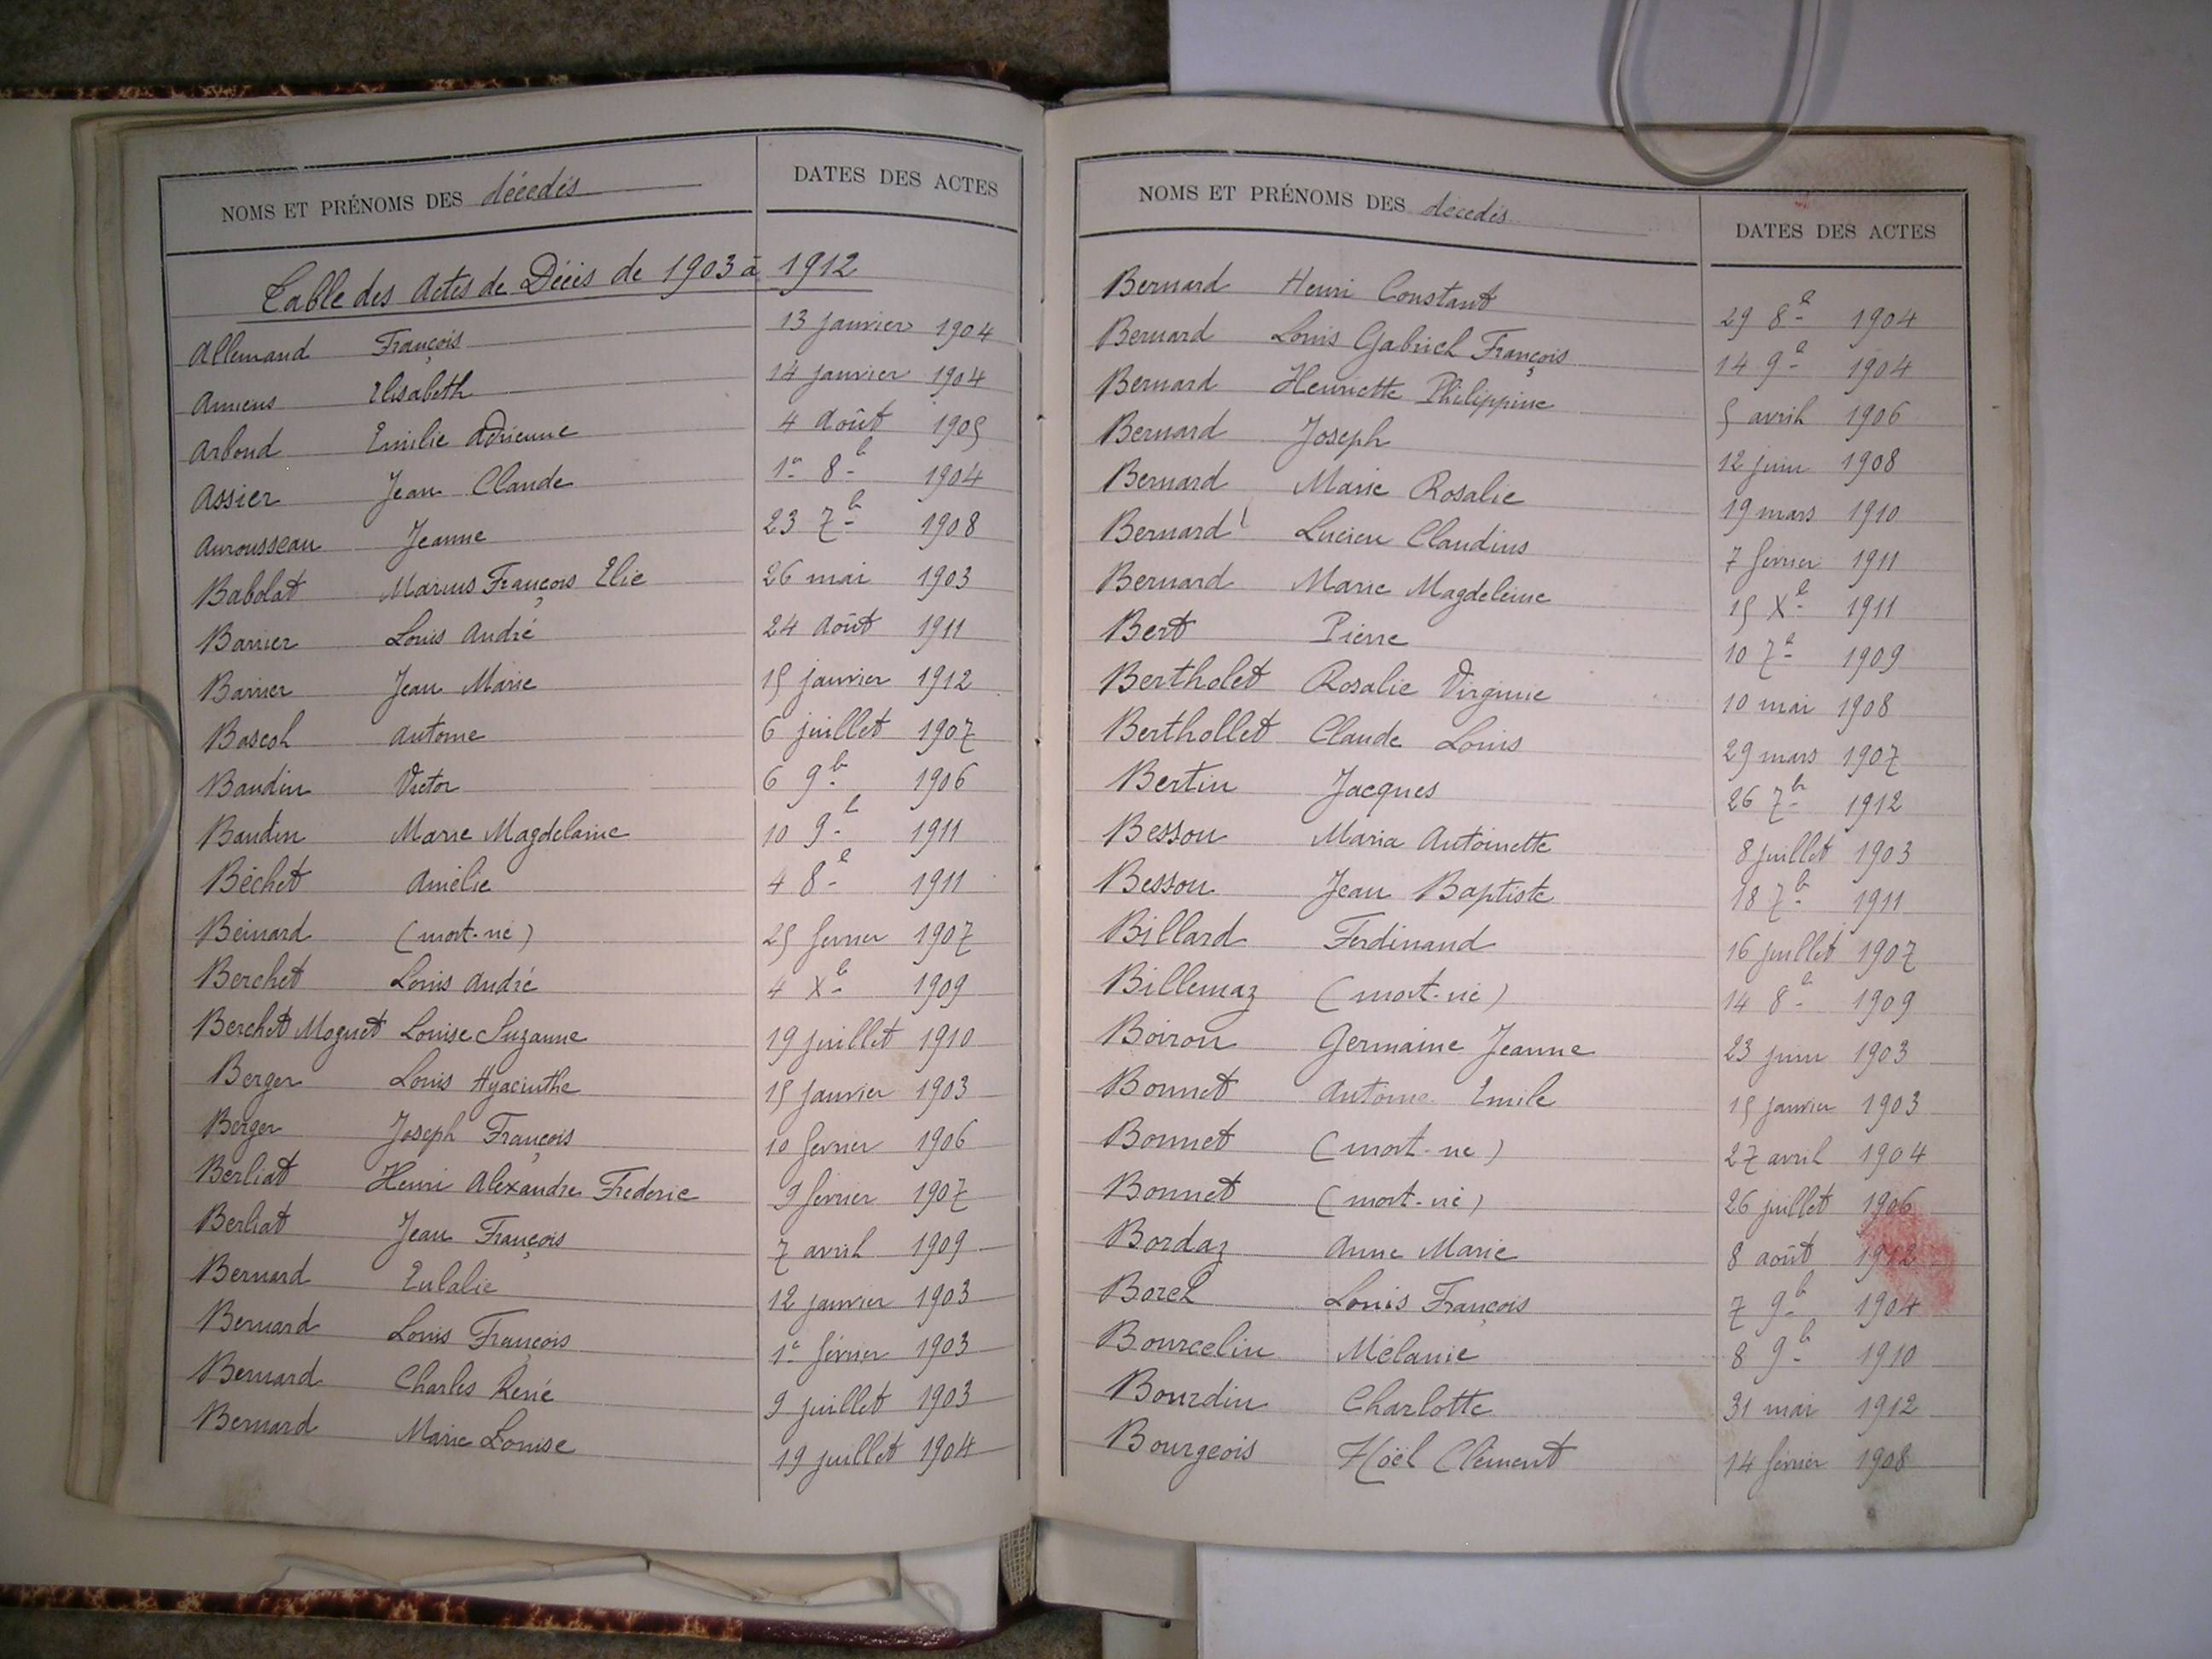 NOMS ET PRÉNOMS DES décédés DATES DES ACTES
Table des Actes de Décès de 1903 à 1912
Allemand François 13 janvier 1904
Amiens Elisabeth 14 janvier 1904
Arboud Emilie Adrienne 4 Août 1905
Assier Jean Claude 1er 8b 1904
Aurousseau Jeanne 23 7b 1908
Babolat Marius François Elie 26 mai 1903
Barrier Louis André 24 Août 1911
Barrier Jean Marie 15 janvier 1912
Bascoh Antome 6 juillet 1907
Baudin Victor 6 9b 1906
Baudin Marie Magdelaine 10 9b 1911
Béchet Amélie 4 8b 1911
Beinard (mort-né) 25 fevrier 1907
Berchet Louis André 4 Xb 1909
Berchet Moguet Louise Suzanne 19 juillet 1910
Berger Louis Hyacinthe 15 janvier 1903
Berger Joseph François 10 fevrier 1906
Berliat Henri Alexandre Frederic 9 février 1907
Berliat Jean François 7 avril 1909
Bernard Eulalie 12 janvier 1903
Bernard Louis François 1er février 1903
Bernard Charles René 9 juillet 1903
Bernard Marie Louise 19 juillet 1904
NOMS ET PRÉNOMS DES décédés DATES DES ACTES
Bernard Henri Constant 29 8b 1904
Bernard Louis Gabriel François 14 9b 1904
Bernard Henriette Philippine 5 avril 1906
Bernard Joseph 12 juin 1908
Bernard Marie Rosalie 19 mars 1910
Bernard Lucien Claudius 7 fevrier 1911
Bernard Marie Magdeleine 15 Xb 1911
Bert Pierre 10 7b 1909
Bertholet Rosalie Virginie 10 mai 1908
Berthollet Claude Louis 29 mars 1907
Bertin Jacques 26 7b 1912
Besson Maria Antoinette 8 juillet 1903
Besson Jean Baptiste 18 7b 1911
Billard Ferdinand 16 juillet 1907
Billemaz (mort-né) 14 8b 1909
Boiron Germaine Jeanne 23 juin 1903
Bonnet Antoine Emile 15 janvier 1903
Bonnet (mort-né) 27 avril 1904
Bonnet (mort-né) 26 juillet 1906
Bordaz Anne Marie 8 août 1912
Borel Louis François 7 9b 1904
Bourcelin Mélanie 8 9b 1910
Bourdin Charlotte 31 mai 1912
Bourgeois Noël Clément 14 février 1908